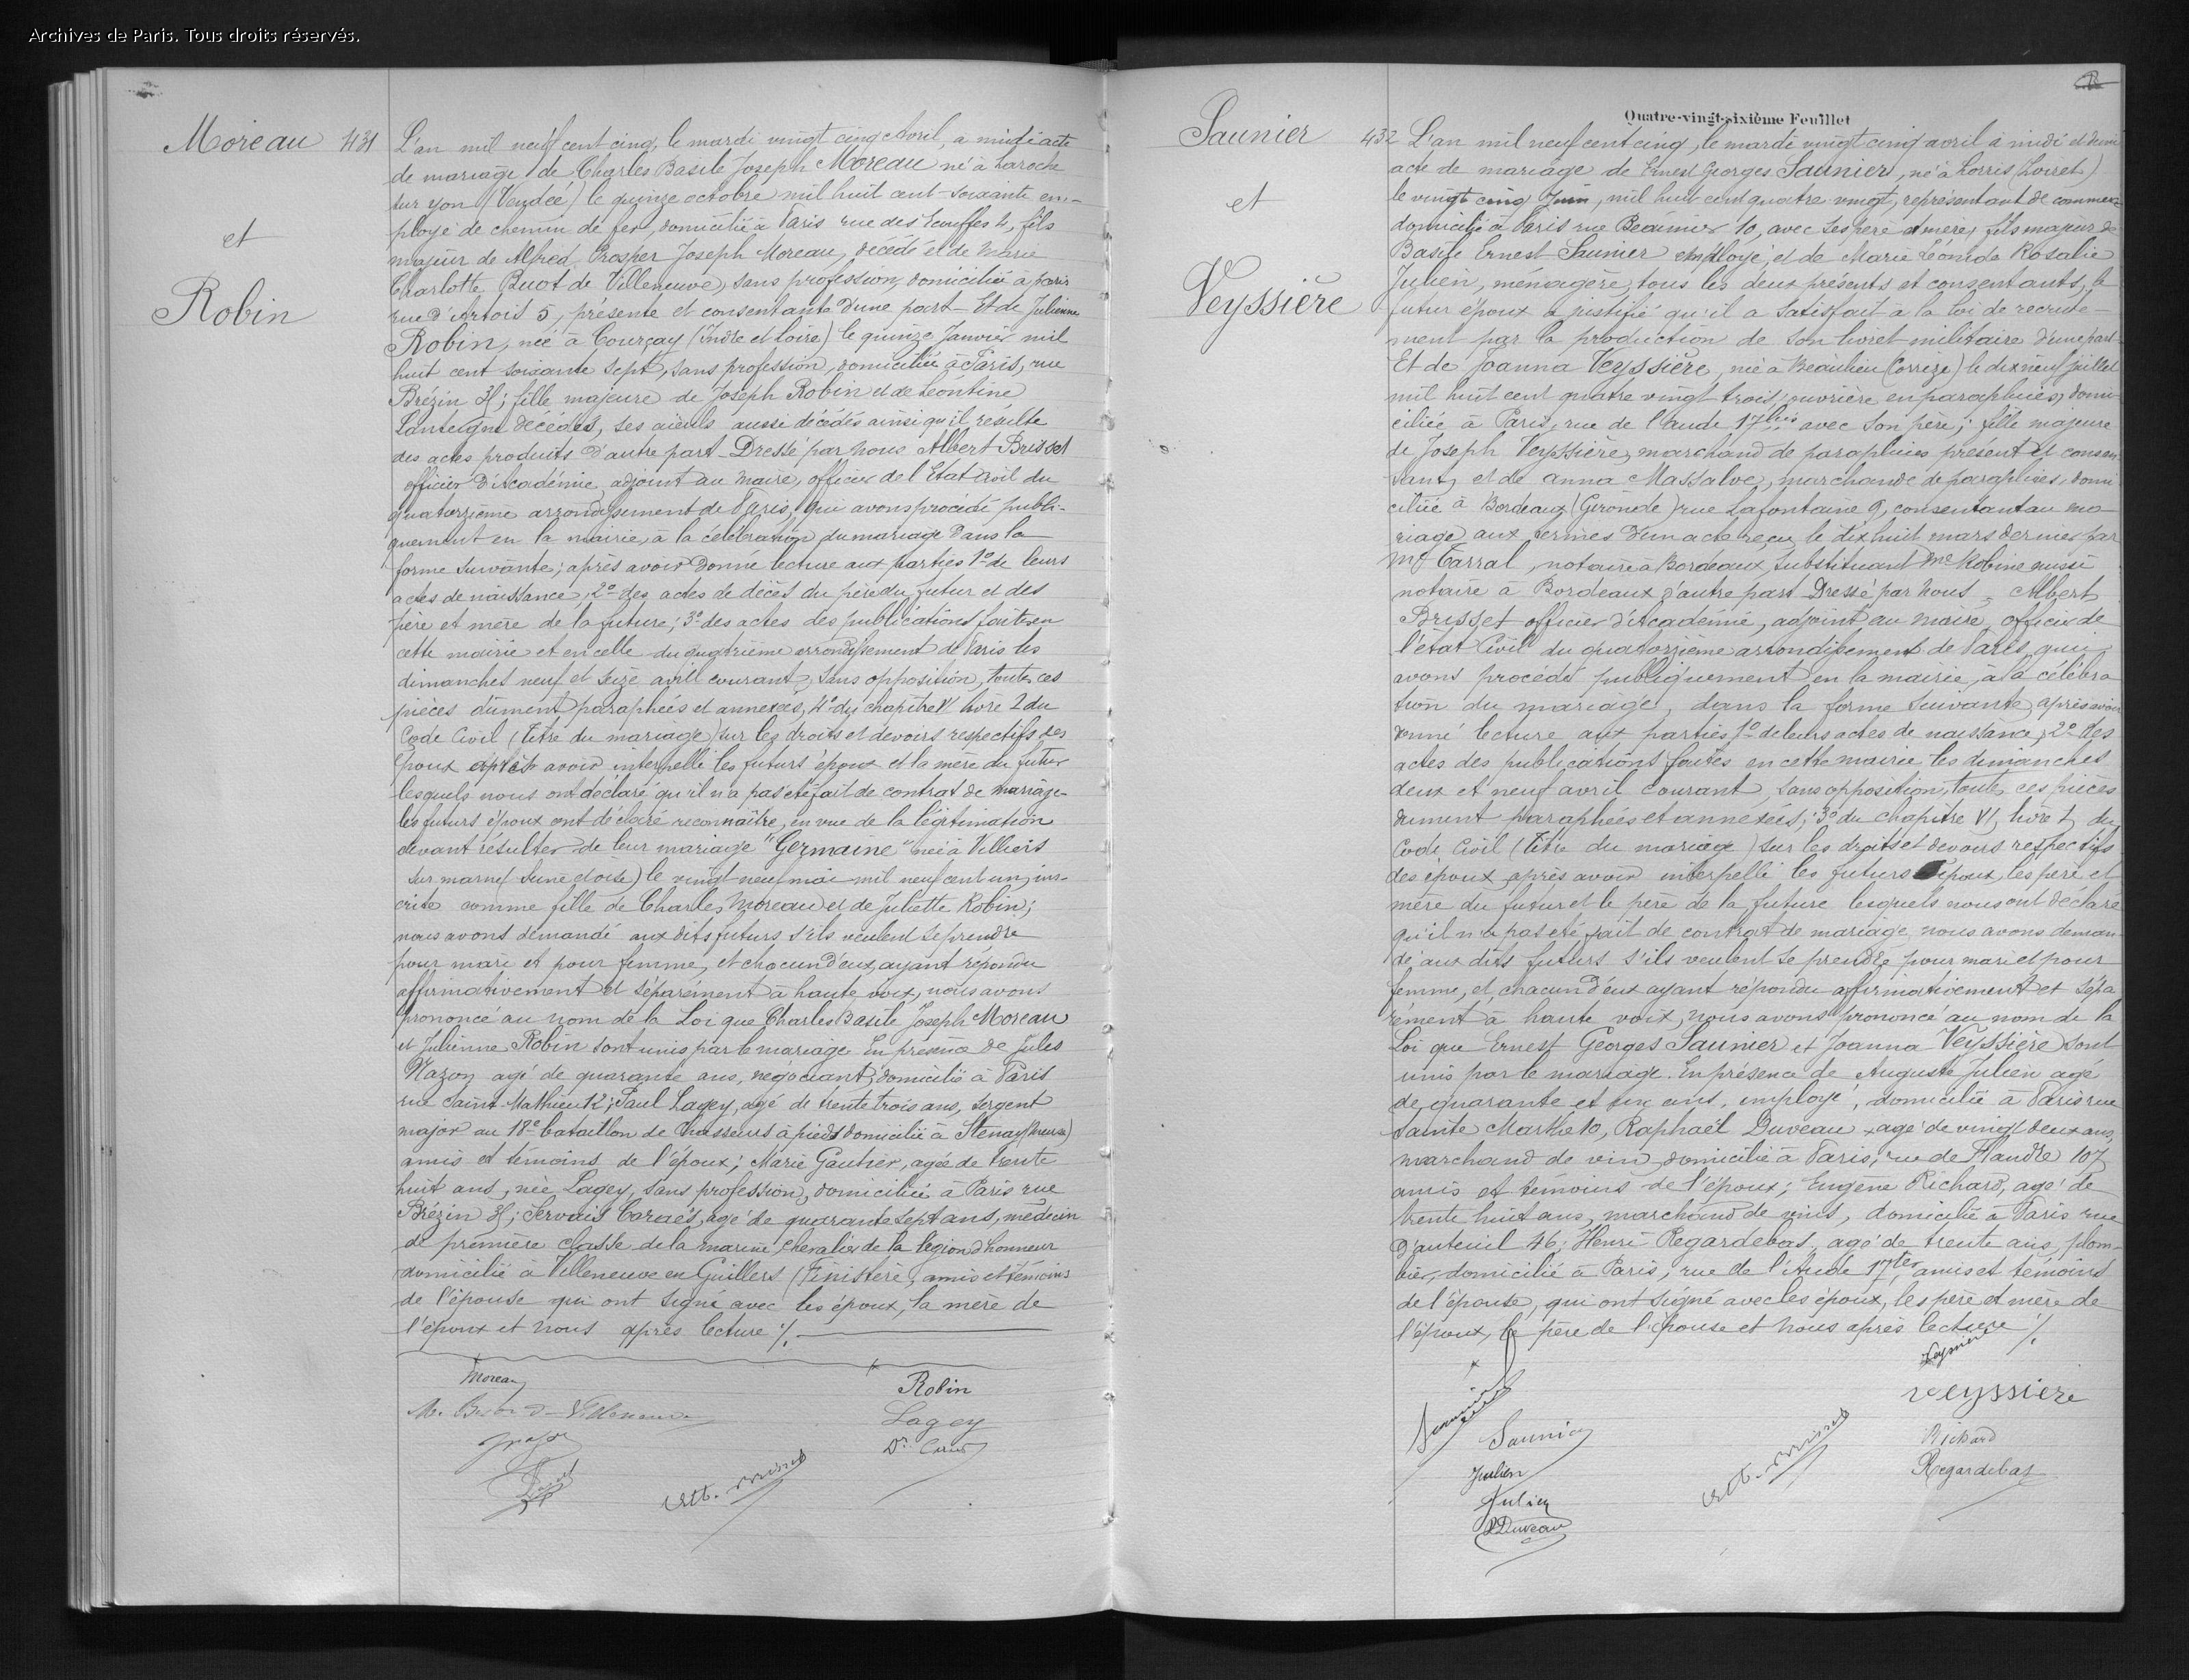 Archives de Paris. Tous droits réservés.
Moreau 431
et
Robin
L'an mil neuf cent cinq, le mardi vingt cinq Avril, a midi acte
de mariage de Charles Basile Joseph Moreau né à Laroche
sur yon (Vendée) le quinze octobre mil huit cent soixante em-
ployé de chemin de fer, domicilié à Paris rue des Ecouffes 4, fils
majeur de Alfred Prosper Joseph Moreau, décédé et de Marie
Charlotte Buot de Villeneuve, sans profession, domiciliée à paris
rue d'Artois 5, présente et consentante d'une part - Et de Julienne
Robin, née à Courçay (Indre et Loire) le quinze Janvier mil
huit cent soixante sept, sans profession, domiciliée à Paris, rue
Brézin 31; fille majeure de Joseph Robin et de Léontine
Lanteigne décédés, ses aïeuls aussi décédés ainsi qu'il résulte
des actes produits d'autre part - Dressé par nous Albert Brisset
officier d'Académie, adjoint au maire, officier de l'Etat civil du
quatorzième arrondissement de Paris, qui avons procédé publi-
quement en la mairie, à la célébration du mariage dans la
forme suivante; après avoir donné lecture aux parties 1° de leurs
actes de naissance, 2° des actes de décès du père du futur et des
père et mère de la future; 3° des actes des publications faites en
cette mairie et en celle du quatrième arrondissement de Paris les
dimanches neuf et seize avril courant, sans opposition, toutes ces
pièces dûment paraphées et annexées, 4° du chapitre VI livre 1 du
Code Civil (titre du mariage) sur les droits et devoirs respectifs des
époux après avoir interpellé les futurs époux et la mère du futur
lesquels nous ont déclaré qu'il n'a pas été fait de contrat de mariage
les futurs époux ont déclaré reconnaître, en vue de la légitimation
devant résulter de leur mariage "Germaine" née à Villiers
sur marne (Seine et oise) le vingt neuf mai mil neuf cent un, ins-
crite comme fille de Charles Moreau et de Juliette Robin;
nous avons demandé aux dits futurs s'ils veulent se prendre
pour mari et pour femme, et chacun d'eux ayant répondu
affirmativement et séparément à haute voix, nous avons
prononcé au nom de la Loi que Charles Basile Joseph Moreau
et Julienne Robin sont unis par le mariage En présence de Jules
Mazon agé de quarante ans, négociant, domicilié à Paris
rue Saint Mathieu 12; Paul Lagey, agé de trente trois ans, sergent
major au 18e bataillon de Chasseurs à pieds domicilié à Stenay (Meuse)
amis et témoins de l'époux; Marie Gautier, agée de trente
huit ans, née Lagey, sans profession, domiciliée à Paris rue
Brézin 31; Servais Caraës, agé de quarante sept ans, médecin
de première classe de la marine, chevalier de la légion d'honneur
domicilié à Villeneuve en Guillers (Finistère, amis et témoins
de l'épouse qui ont signé avec les époux, la mère de
l'époux et nous après lecture ./.
Moreau
Robin
Villeneuve
Lagey
Dr
Alb. Brisset
Quatre-vingt-sixième Feuillet
Saunier 432
et
Veyssière
L'an mil neuf cent cinq, le mardi vingt cinq avril à midi et demi
acte de mariage de Ernest Georges Saunier, né à Lorris (Loiret)
le vingt cinq Juin, mil huit cent quatre-vingt, représentant de commerce
domicilié à Paris rue Beaunier 10, avec ses père et mère, fils majeur de
Basile Ernest Saunier employé, et de Marie Léonida Rosalie
Julien, ménagère, tous les deux présents et consentants, le
futur époux a justifié qu'il a satisfait à la loi de recrute-
ment par la production de son livret militaire d'une part
Et de Joanna Veyssière, née à Beaulieu (Corrèze) le dix neuf juillet
mil huit cent quatre vingt trois, ouvrière en parapluies, domi-
ciliée à Paris, rue de l'aude 17 bis avec son père; fille majeure
de Joseph Veyssière, marchand de parapluies présent et consen-
tant, et de anna Massalve, marchande de parapluies, domi-
ciliée à Bordeaux (Gironde) rue Lafontaine 9, consentant au ma-
riage aux termes d'un acte reçu le dix huit mars dernier par
Me Carral, notaire à Bordeaux, substituant Me Robine aussi
notaire à Bordeaux d'autre part - Dressé par nous, Albert
Brisset officier d'Académie, adjoint au maire, officier de
l'état Civil du quatorzième arrondissement de Paris, qui
avons procédé publiquement en la mairie, à la célébra
tion du mariage, dans la forme suivante, après avoir
donné lecture aux parties 1° de leurs actes de naissance, 2° des
actes des publications faites en cette mairie les dimanches
deux et neuf avril courant, sans opposition, toutes ces pièces
dument paraphées et annexées, 3° du chapitre VI, livre 1, du
Code Civil (titre du mariage) sur les droits et devoirs respectifs
des époux après avoir interpellé les futurs époux, les père et
mère du futur et le père de la future lesquels nous ont déclaré
qu'il n'a pas été fait de contrat de mariage, nous avons deman
dé aux dits futurs s'ils veulent se prendre pour mari et pour
femme, et chacun d'eux ayant répondu affirmativement et sépa
rément à haute voix, nous avons prononcé au nom de la
Loi que Ernest Georges Saunier et Joanna Veyssière sont
unis par le mariage. En présence de Auguste Julien agé
de quarante et un ans, employé, domicilié à Paris rue
Sainte Marthe 10, Raphaël Duveau, agé de vingt deux ans,
marchand de vin, domicilié à Paris, rue de Flandre 107
amis et témoins de l'époux; Eugène Richard, agé de
trente huit ans, marchand de vins, domicilié à Paris rue
d'auteuil 46; Henri Regardebas, agé de trente ans, plom-
bier, domicilié à Paris, rue de l'Aude 17 ter, amis et témoins
de l'épouse, qui ont signé avec les époux, les père et mère de
l'époux, le père de l'épouse et nous après lecture ./.
Saunier
Veyssière
Veyssière
Saunier
Richard
Julien
Regardebas
Julien
Duveau
Alb. Brisset